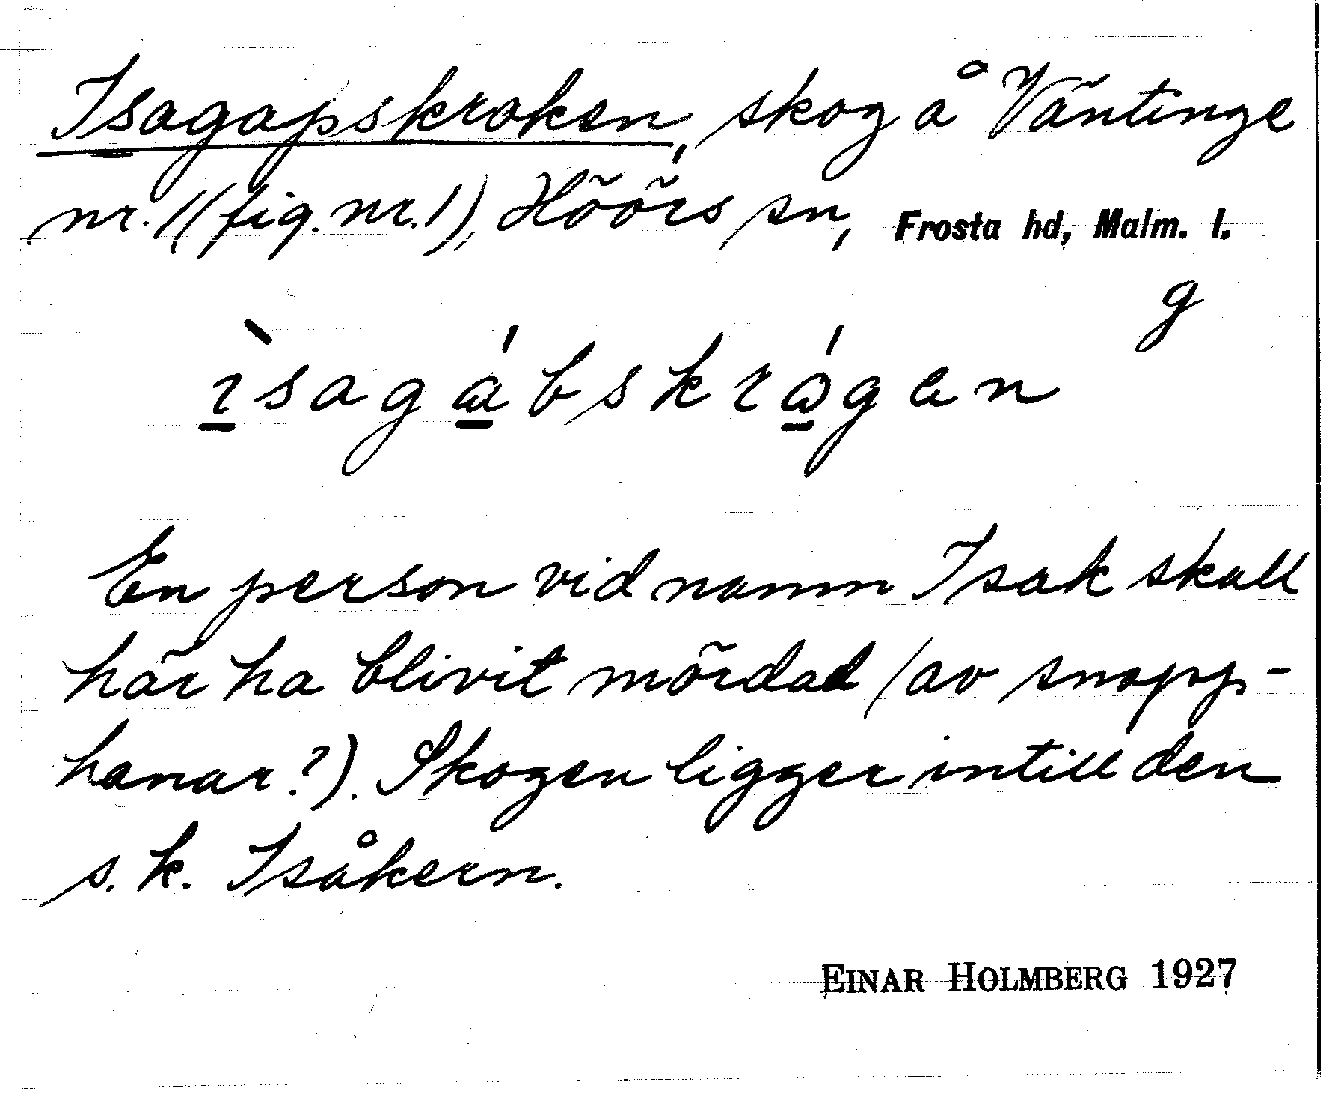 Isagapskroken, skog å Väntinge
nr. 1 (fig. nr. 1), Höörs sn, Frosta hd, Malm. l.
g
ìsagábskrágen
En person vid namn Isak skall
här ha blivit mördad (av snapp-
hanar?). Skogen ligger intill den
s.k. Isåkern.
EINAR HOLMBERG 1927